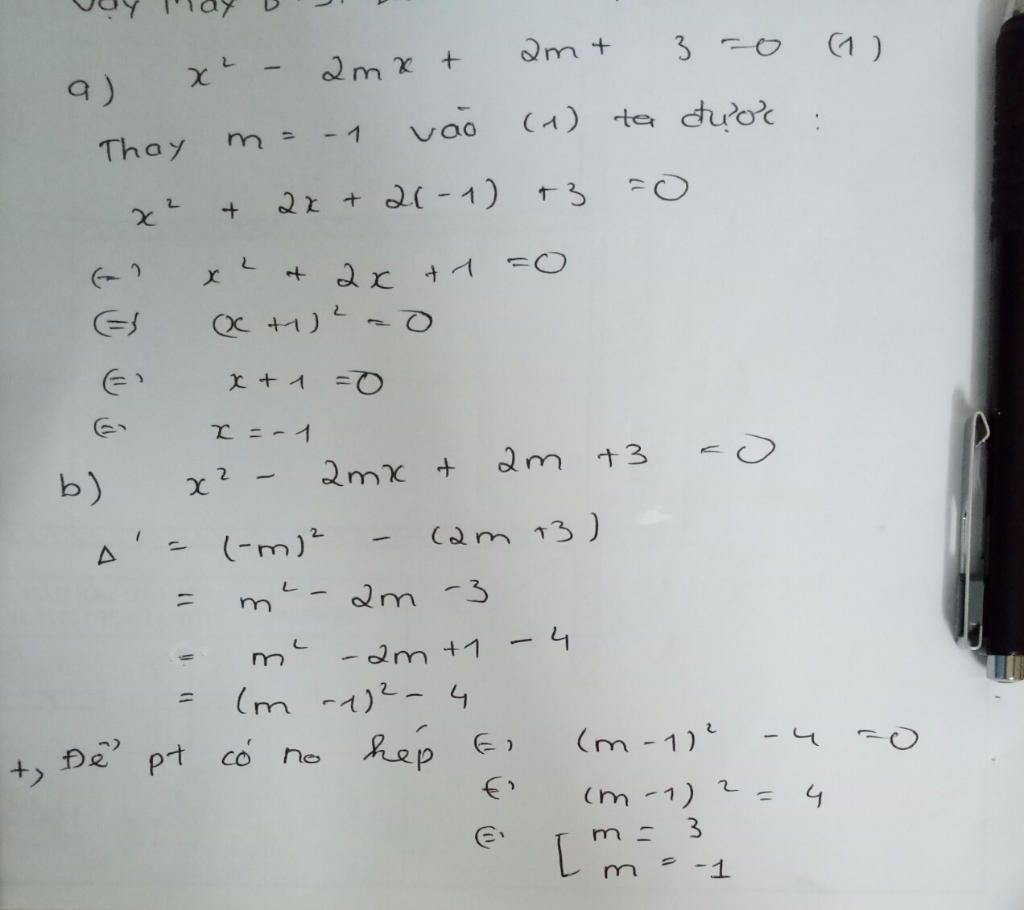 Vậy máy
a) x² - 2mx + 2m + 3 = 0 (1)
Thay m = -1 vào (1) ta được :
x² + 2x + 2(-1) + 3 = 0
(=) x² + 2x + 1 = 0
(=) (x + 1)² = 0
(=) x + 1 = 0
(=) x = -1
b) x² - 2mx + 2m + 3 = 0
Δ' = (-m)² - (2m + 3)
= m² - 2m - 3
= m² - 2m + 1 - 4
= (m - 1)² - 4
+, Để pt có no kép (=) (m - 1)² - 4 = 0
(=) (m - 1)² = 4
(=) [ m = 3
m = -1